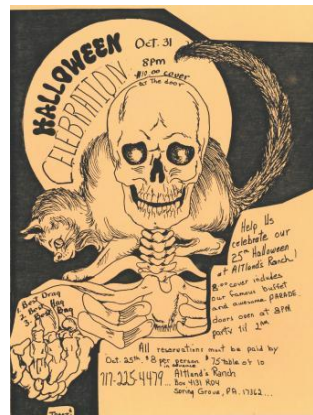 HALLOWEEN
CELEBRATION
Oct. 31
8pm
$10.00 cover
at the door
Help Us
celebrate our
25th Halloween
at Altlands Ranch!
cover includes
our famous buffet
and awesome PARADE.
doors open at 8PM
party til 2AM
1. Best Drag
2. Best Hag
3. Best Bag
All reservations must be paid by
Oct. 25th. $8 per person $75 table of 10
in advance
717-225-4479... Altland's Ranch
Box 4131 RD4
Spring Grove, PA. 17362...